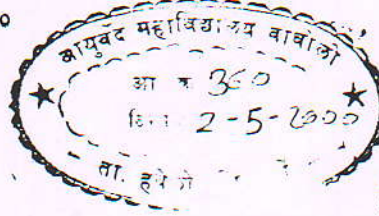 आयुर्वेद महाविद्यालय वाघोली
आ क्र 360
दिनां 2-5-2000
ता. हवेली